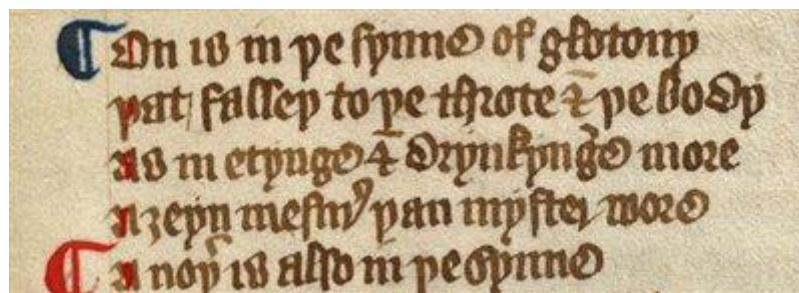 On is in þe synne of glotony
þat falleþ to þe throte & þe body
as in etynge & drynkynge more
aȝeyn mesur þan myster wore
a noþ is also in þe synne